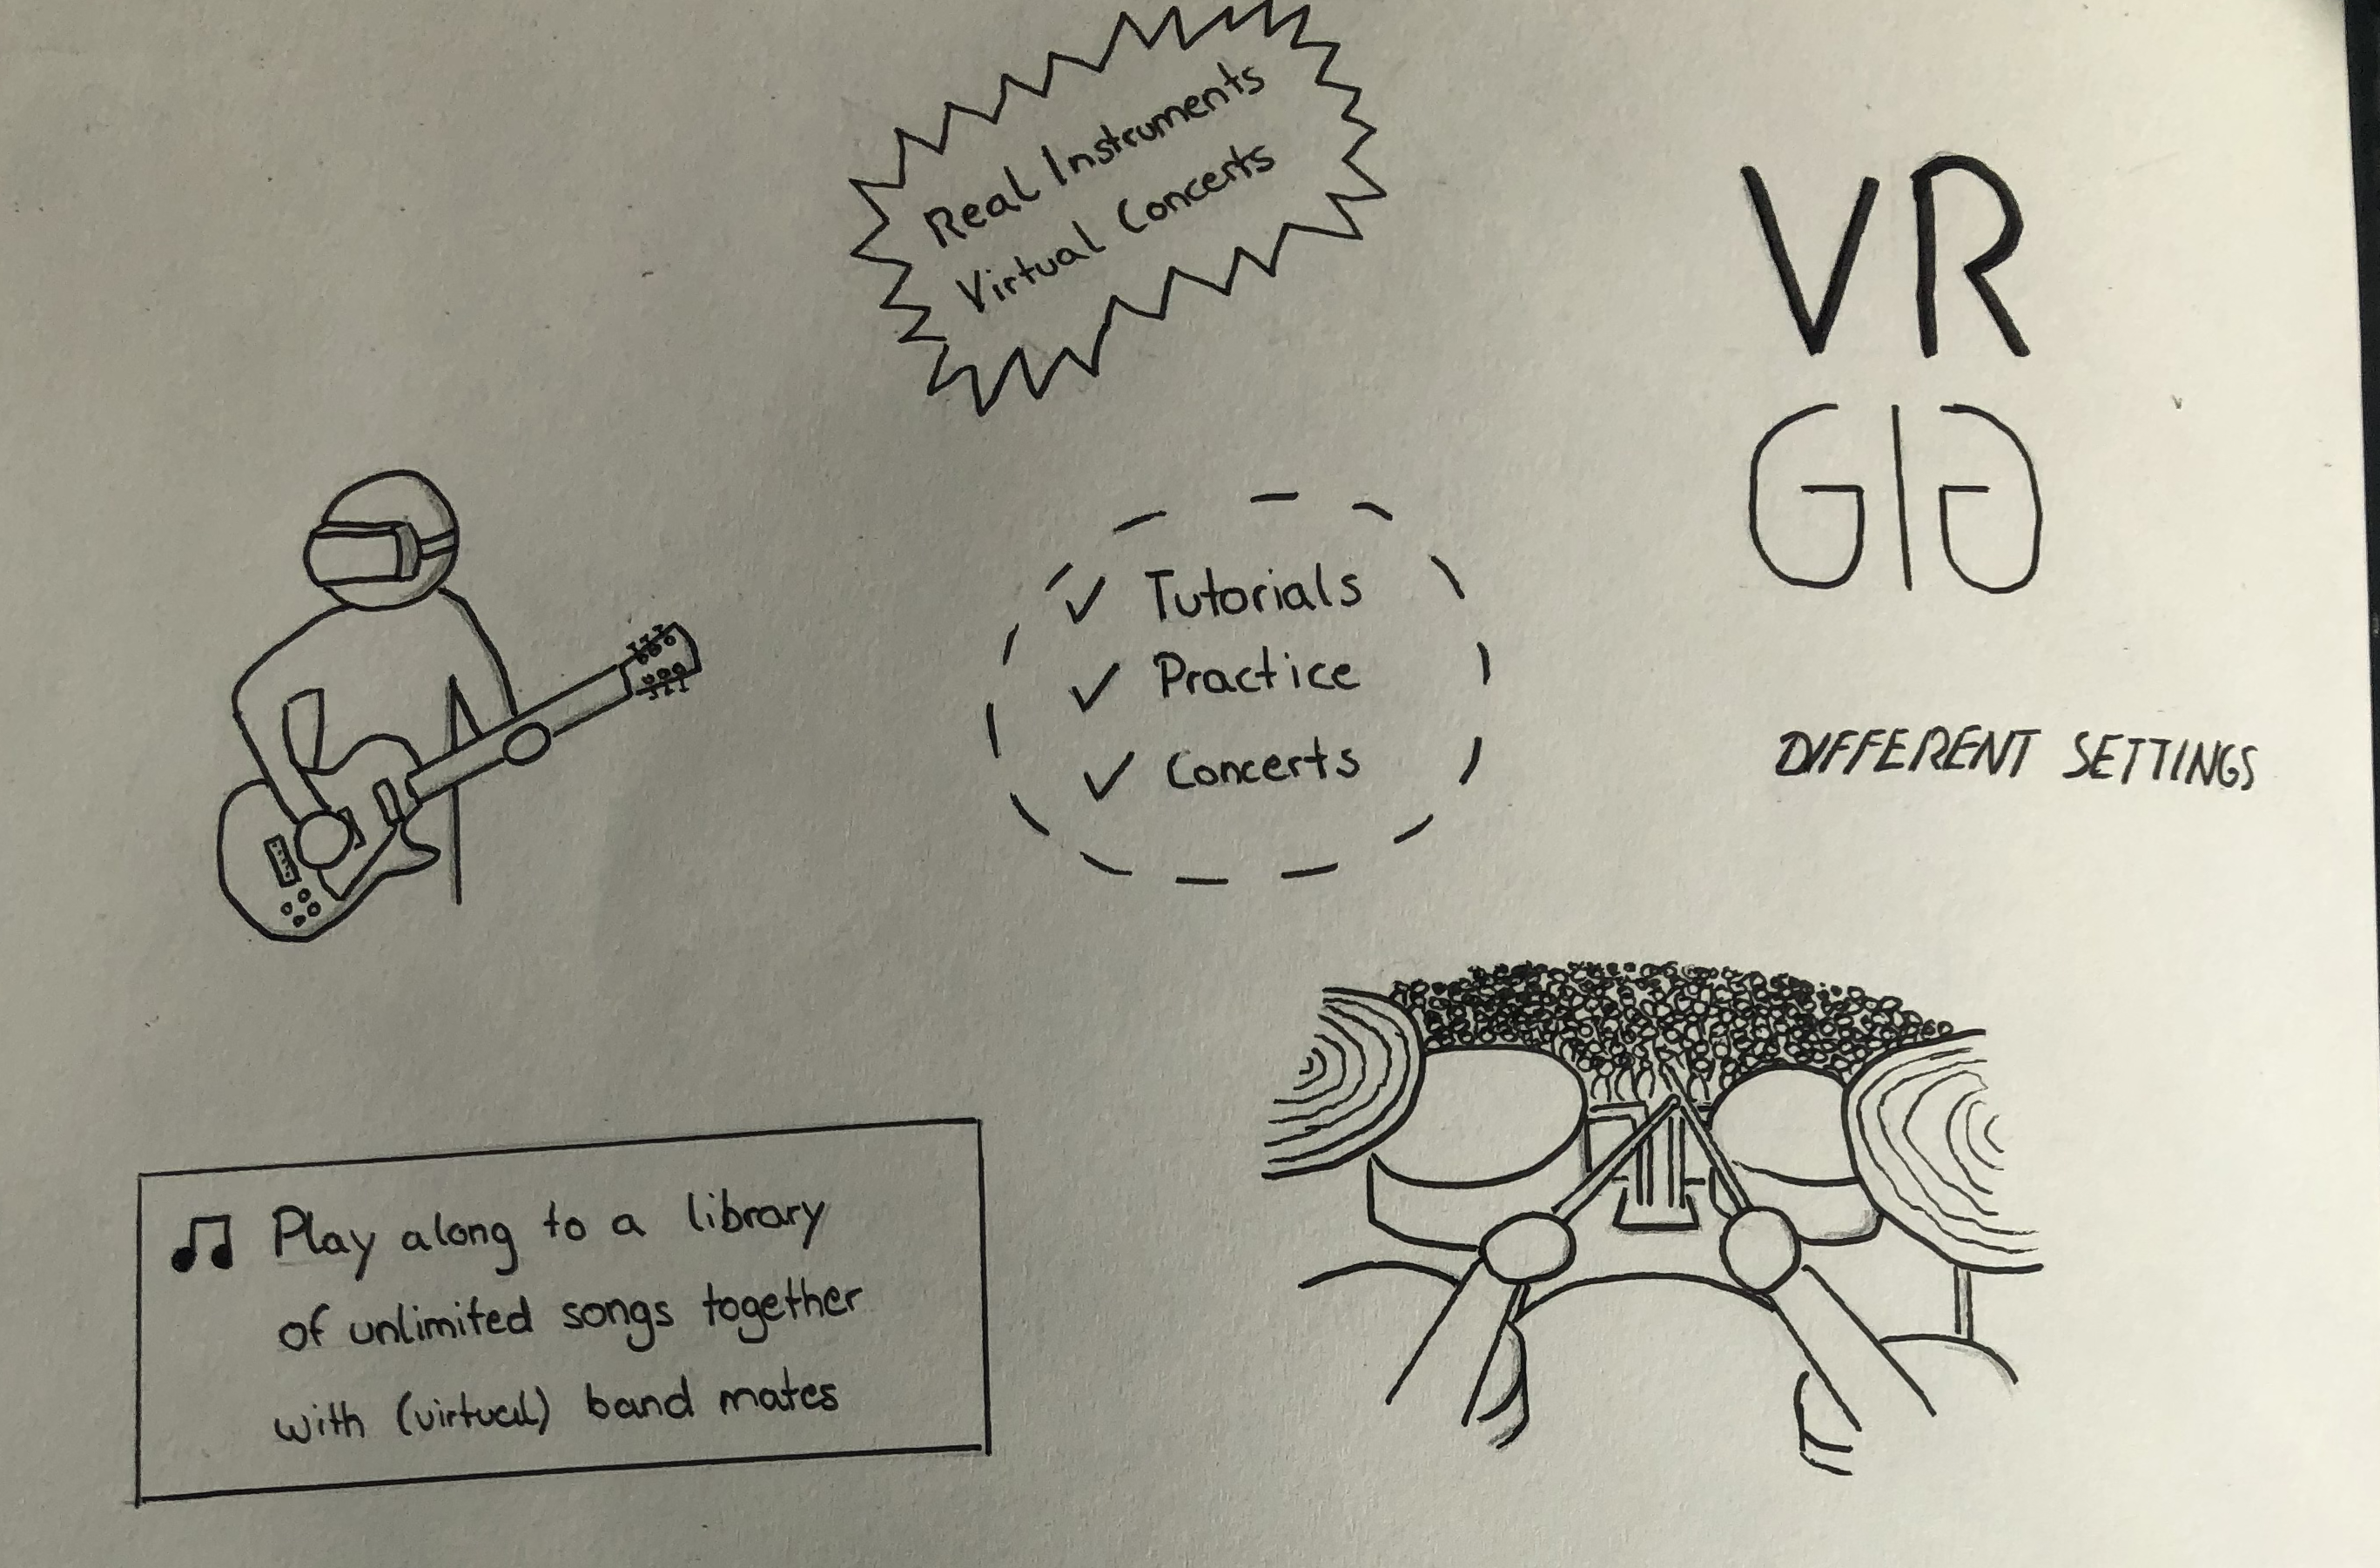 Real Instruments
Virtual Concerts
VR
GIG
✓ Tutorials
✓ Practice
✓ Concerts
DIFFERENT SETTINGS
♫ Play along to a library
of unlimited songs together
with (virtual) band mates